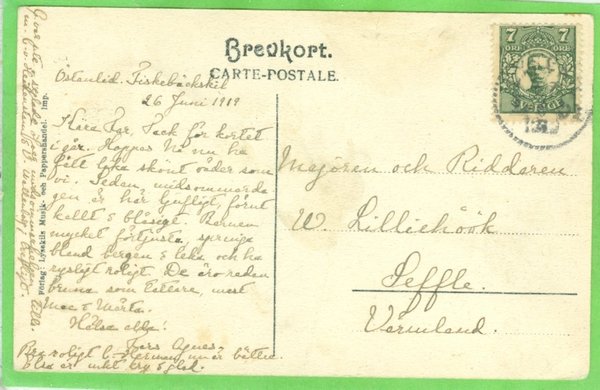 Brevkort.
CARTE-POSTALE.
7 7
ÖRE ÖRE
SVERIGE
Östanlid. Fiskebäckskil
26 Juni 1919
Kära Far. Tack för kortet
i går. Hoppas Ni nu ha
lätt lika skönt väder som
vi. Sedan midsommarda
gen är här ljufligt, förut
kallt & blåsigt. Barnen
mycket förtjusta, springa
bland bergen & leka och ha
rysligt roligt. De äro redan
bruna som tattare, mest
Mac & Märta.
Hälsa alla!
Fars Agnes.
Bra roligt b. Herman nu är bättre.
Elsa är inkl. kry & glad.
Majoren och Riddaren
W. Lilliehöök
Seffle.
Värmland.
Förlag: Lysekils Musik- och Pappershandel. Imp.